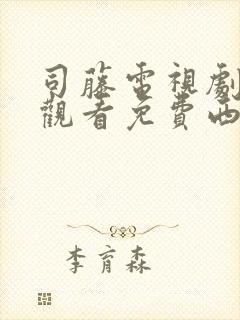 司藤電視劇
觀看免費西
李育森